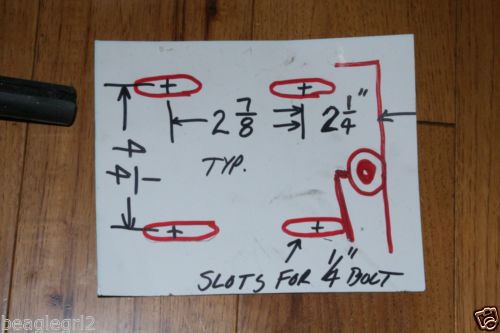 2 7/8
2 1/4"
TYP.
4 1/4
SLOTS FOR 1/4" BOLT
© eBay
beaglegrl2